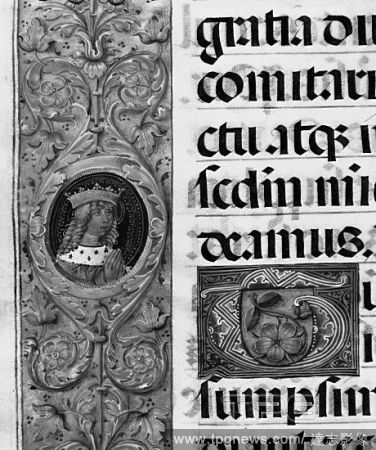 gratia du
comitari
ctu atqʒ i
sedm mi
deamus.
sumpsim
www.tpgnews.com / 達志影像